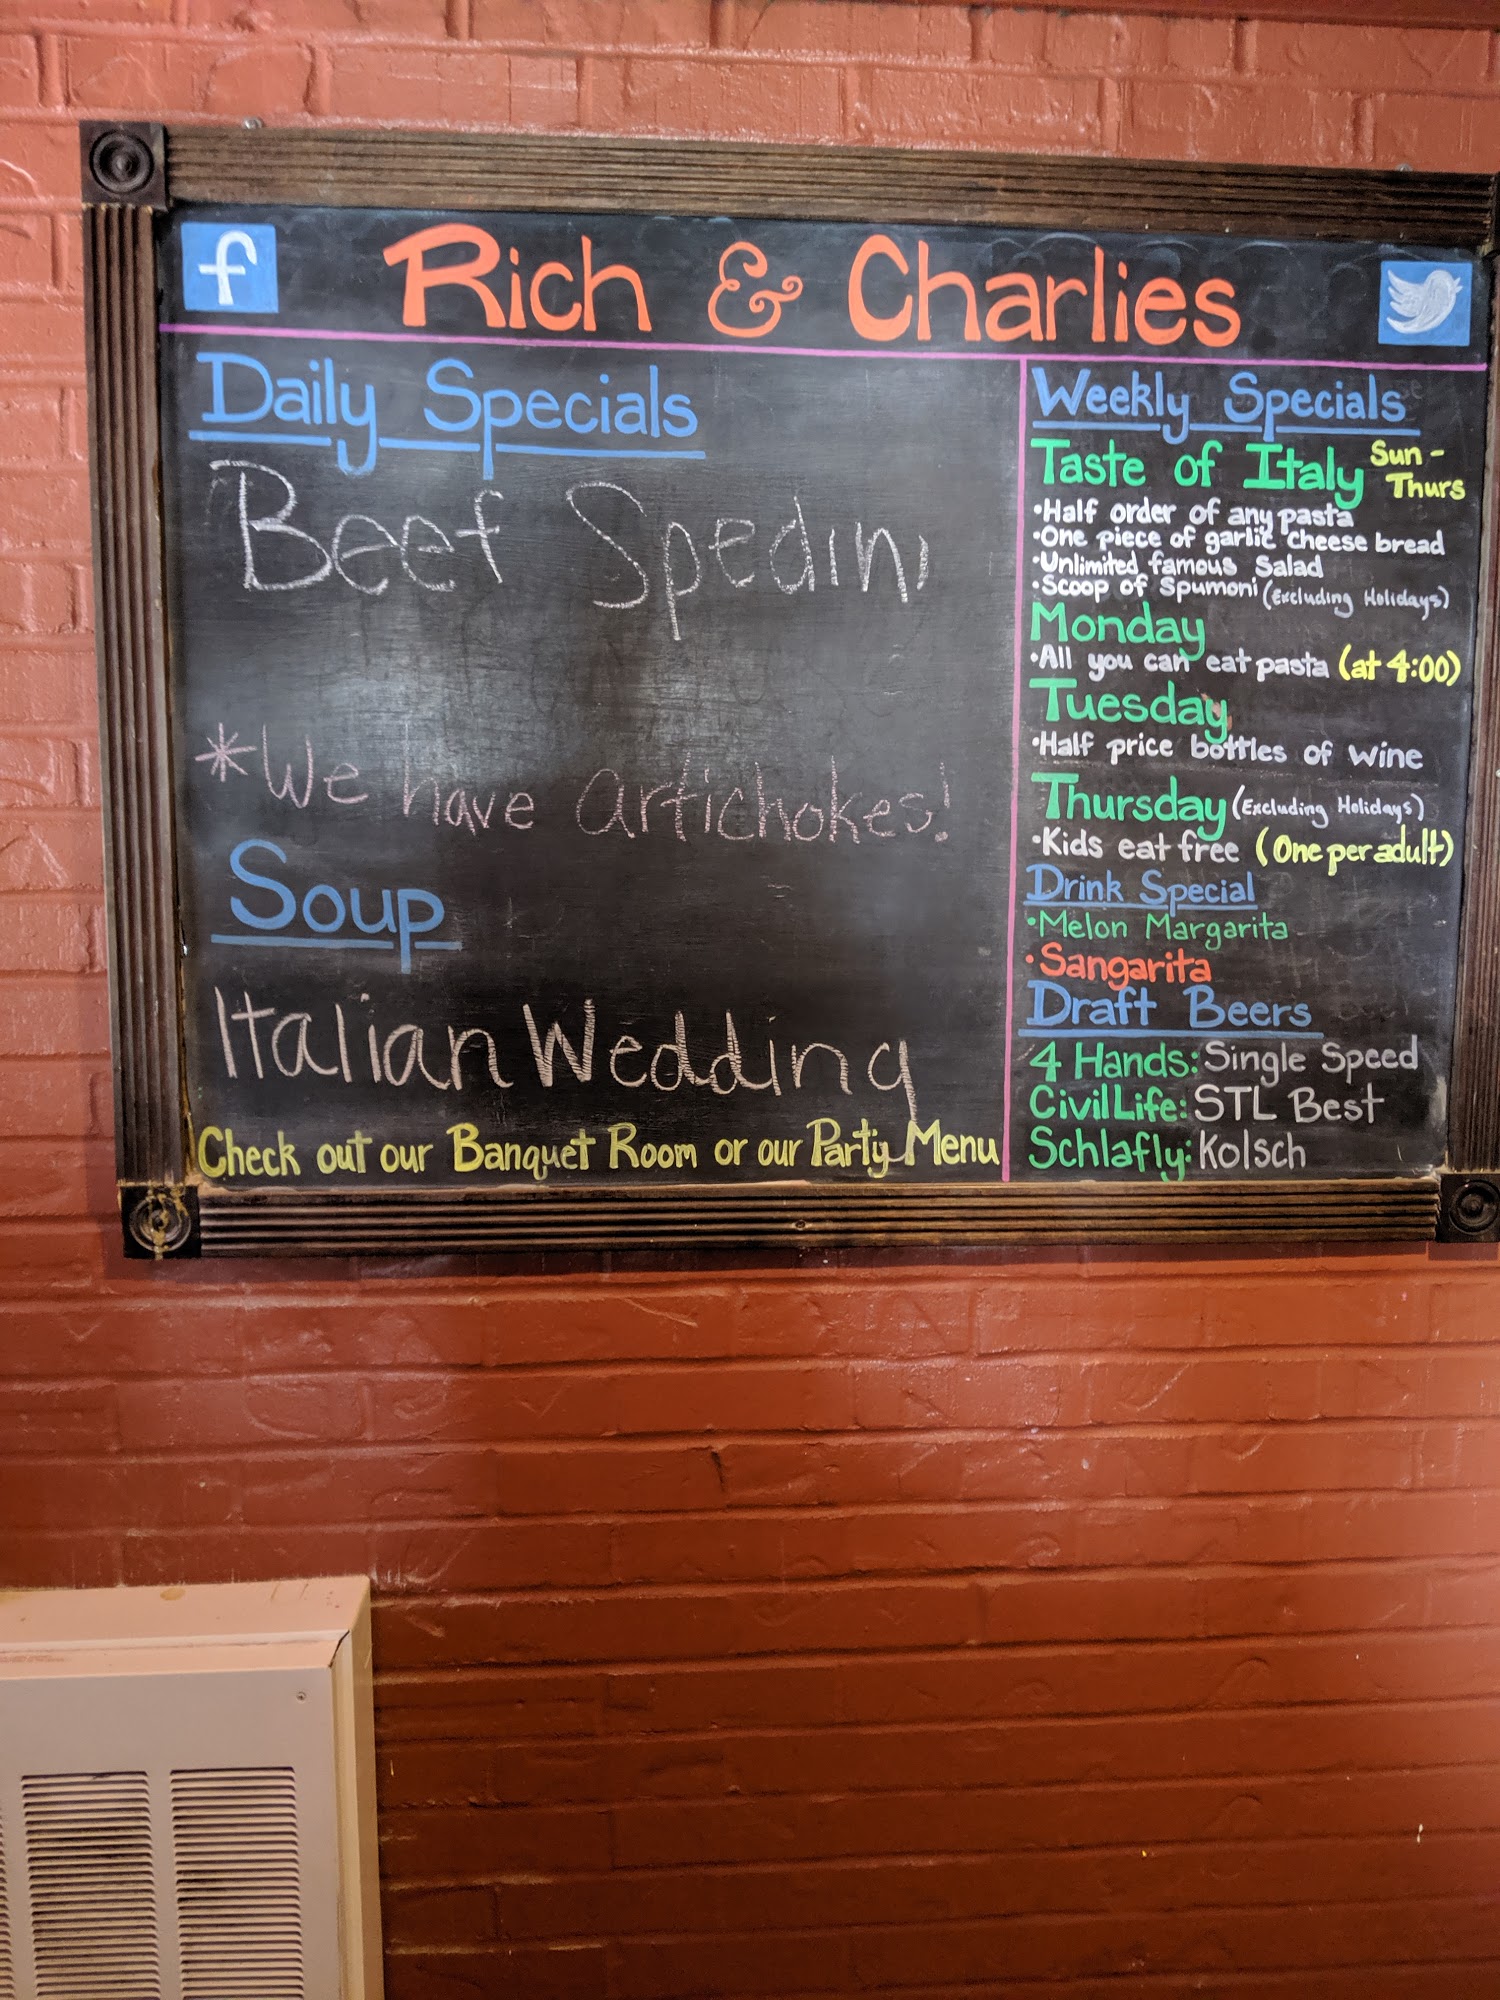 f
Rich & Charlies
Daily Specials
Beef Spedini
*We have artichokes!
Soup
Italian Wedding
Check out our Banquet Room or our Party Menu
Weekly Specials
Taste of Italy Sun - Thurs
•Half order of any pasta
•One piece of garlic cheese bread
•Unlimited famous Salad
•Scoop of Spumoni (Excluding Holidays)
Monday
•All you can eat pasta (at 4:00)
Tuesday
•Half price bottles of wine
Thursday (Excluding Holidays)
•Kids eat free (One per adult)
Drink Special
•Melon Margarita
•Sangarita
Draft Beers
4 Hands: Single Speed
CivilLife: STL Best
Schlafly: Kolsch